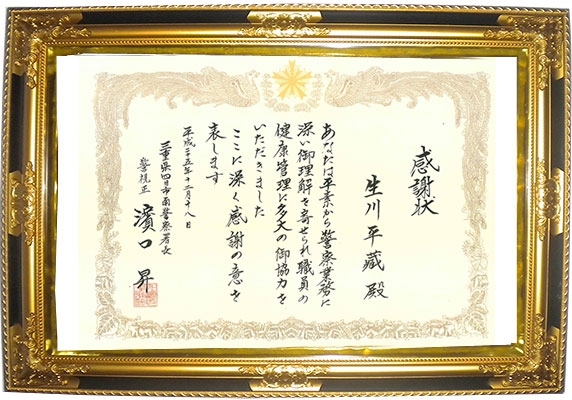 感謝状
生川平蔵殿
あなたは平素から警察業務に
深い御理解を寄せられ職員の
健康管理に多大の御協力を
いただきました
ここに深く感謝の意を
表します
平成二十五年十二月十八日
三重県四日市南警察署長
警視正 濱口昇